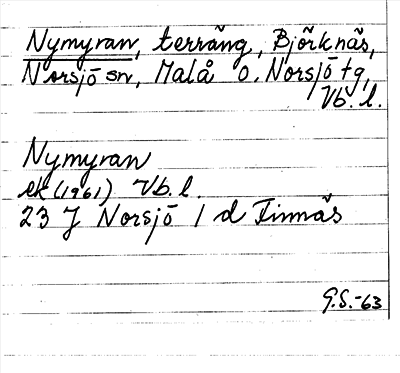 Nymyran, terräng, Björknäs,
Norsjö sn, Malå o. Norsjö tg,
Vb. l.
Nymyran
ek (1961) Vb. l.
23 J Norsjö 1 d Finnäs
G.S.-63